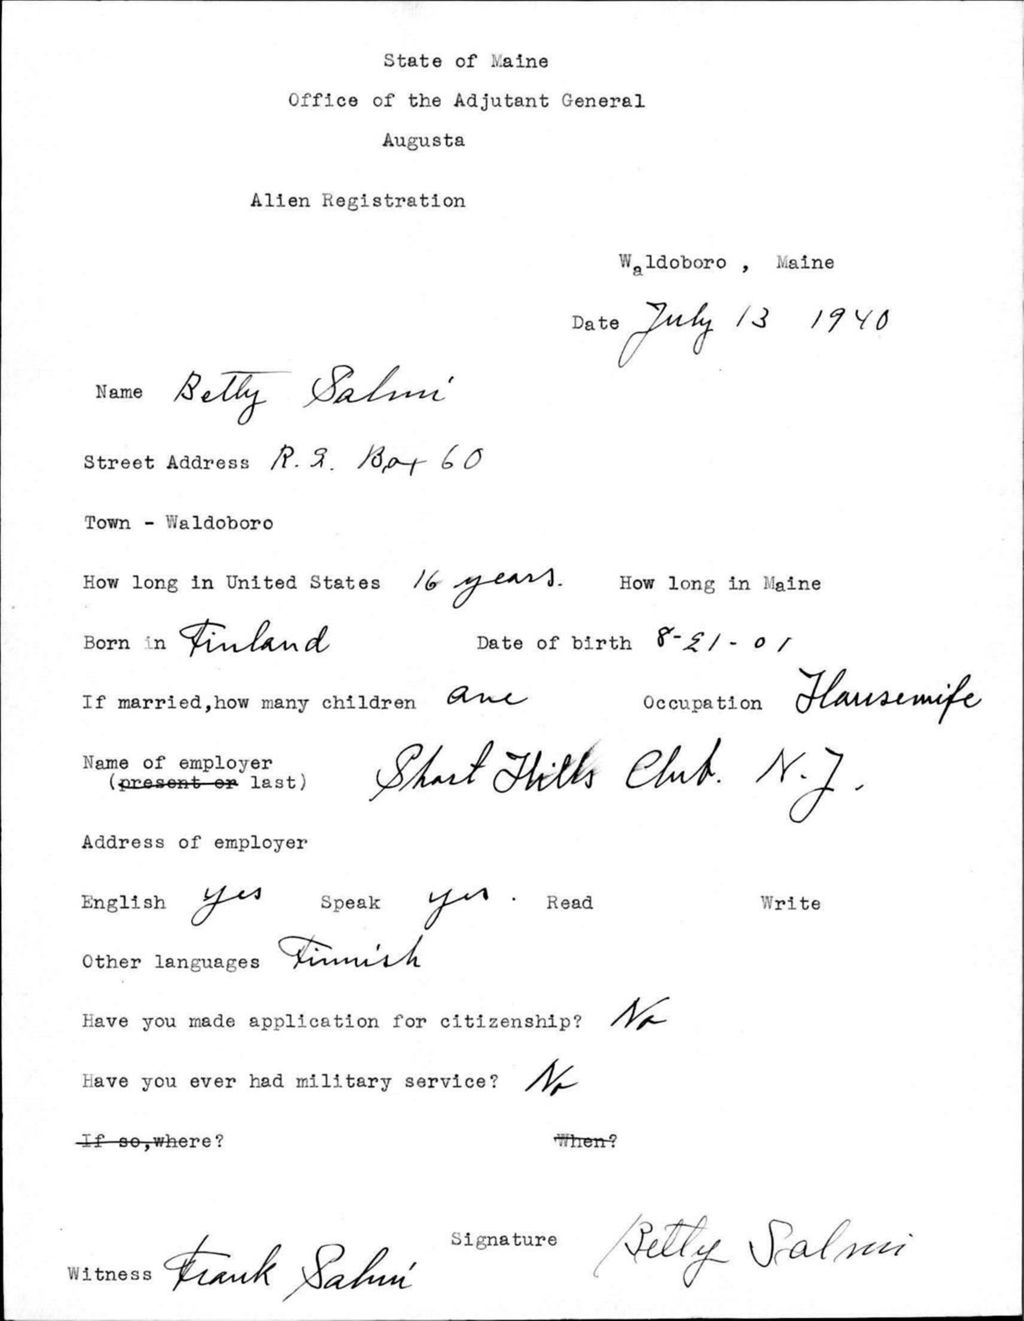 State of Maine
Office of the Adjutant General
Augusta
Alien Registration
Waldoboro , Maine
Date July 13 1940
Name Betty Salmi
Street Address R. 2. Box 60
Town - Waldoboro
How long in United States 16 years. How long in Maine
Born in Finland Date of birth 8-21-01
If married,how many children One Occupation Housewife
Name of employer
(present or last) Short Hills Club. N.J.
Address of employer
English yes Speak yes. Read Write
Other languages Finnish
Have you made application for citizenship? No
Have you ever had military service? No
If so,where? When?
Signature Betty Salmi
Witness Frank Salmi